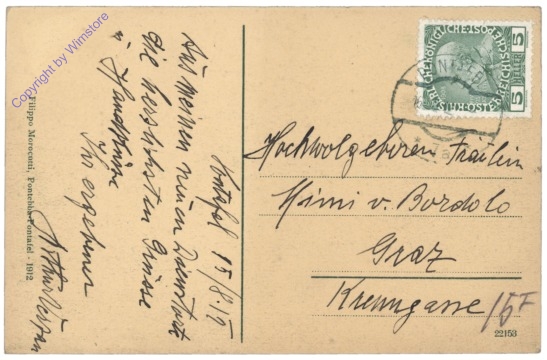 Copyright by Wimstore
Filippo Morocutti, Pontebba-Pontafel - 1912
Pontafel 15/8.
Aus meinen neuen Dienstorte
die herzlichsten Grüsse
u. Handküsse
Ihr ergebener
Arthur
KAISERLICHE KÖNIGLICHE ÖSTERREICHISCHE POST
5 HELLER 5
Hochwolgeboren Fräulein
Mimi v. Bordolo
Graz
Kremgasse 15
22153